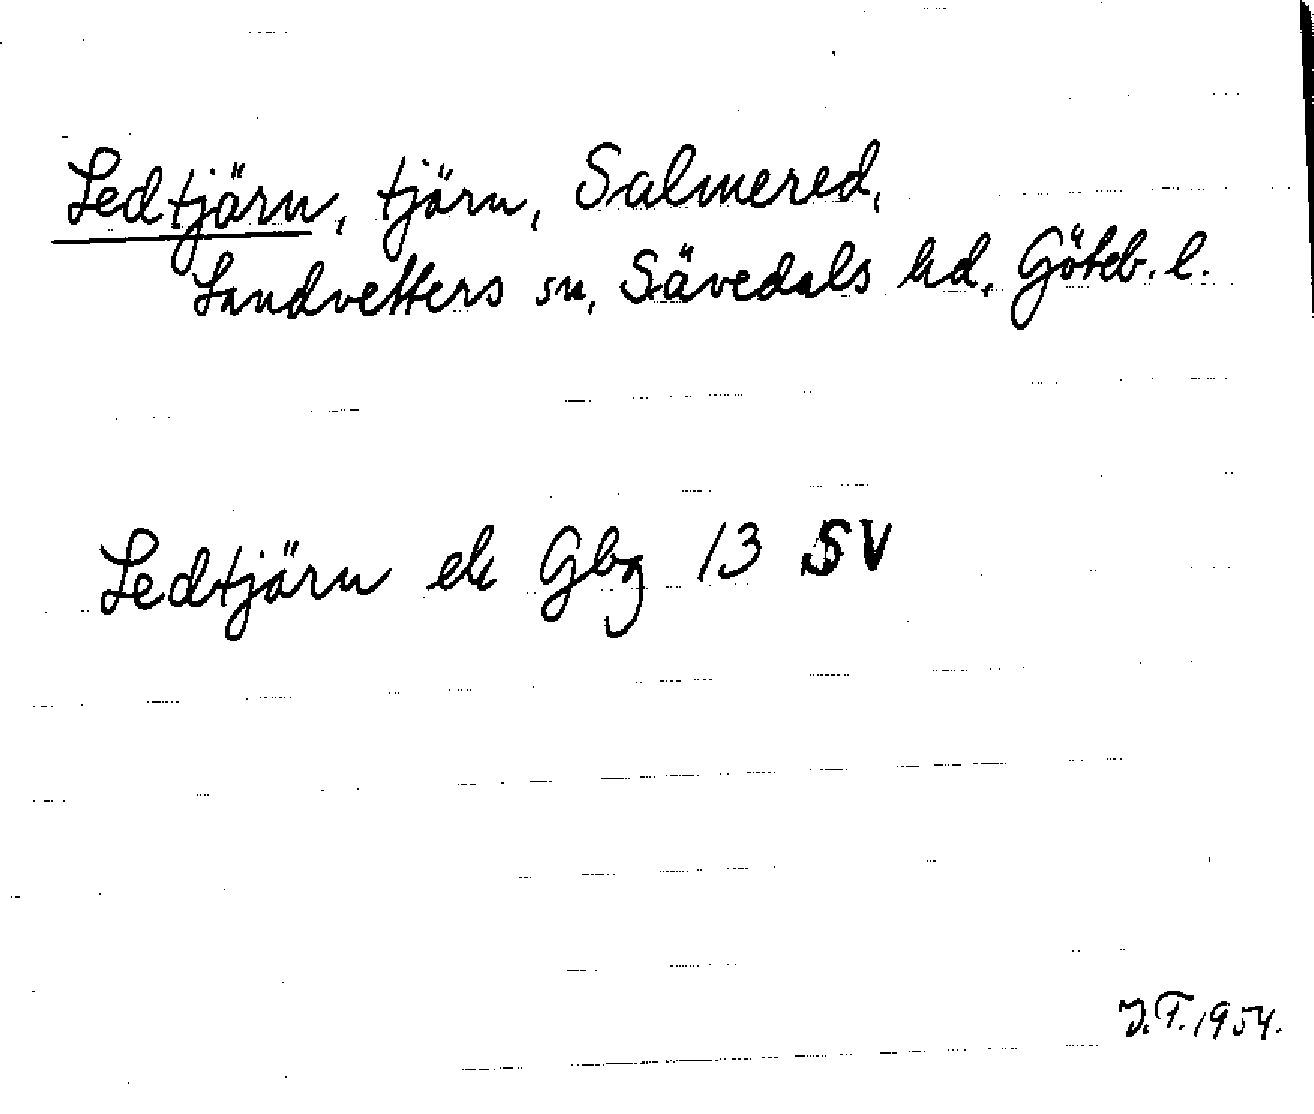 Ledtjärn, tjärn, Salmered,
Landvetters sn, Sävedals hd, Göteb. l.
Ledtjärn ek Gbg 13 SV
J.T. 1954.